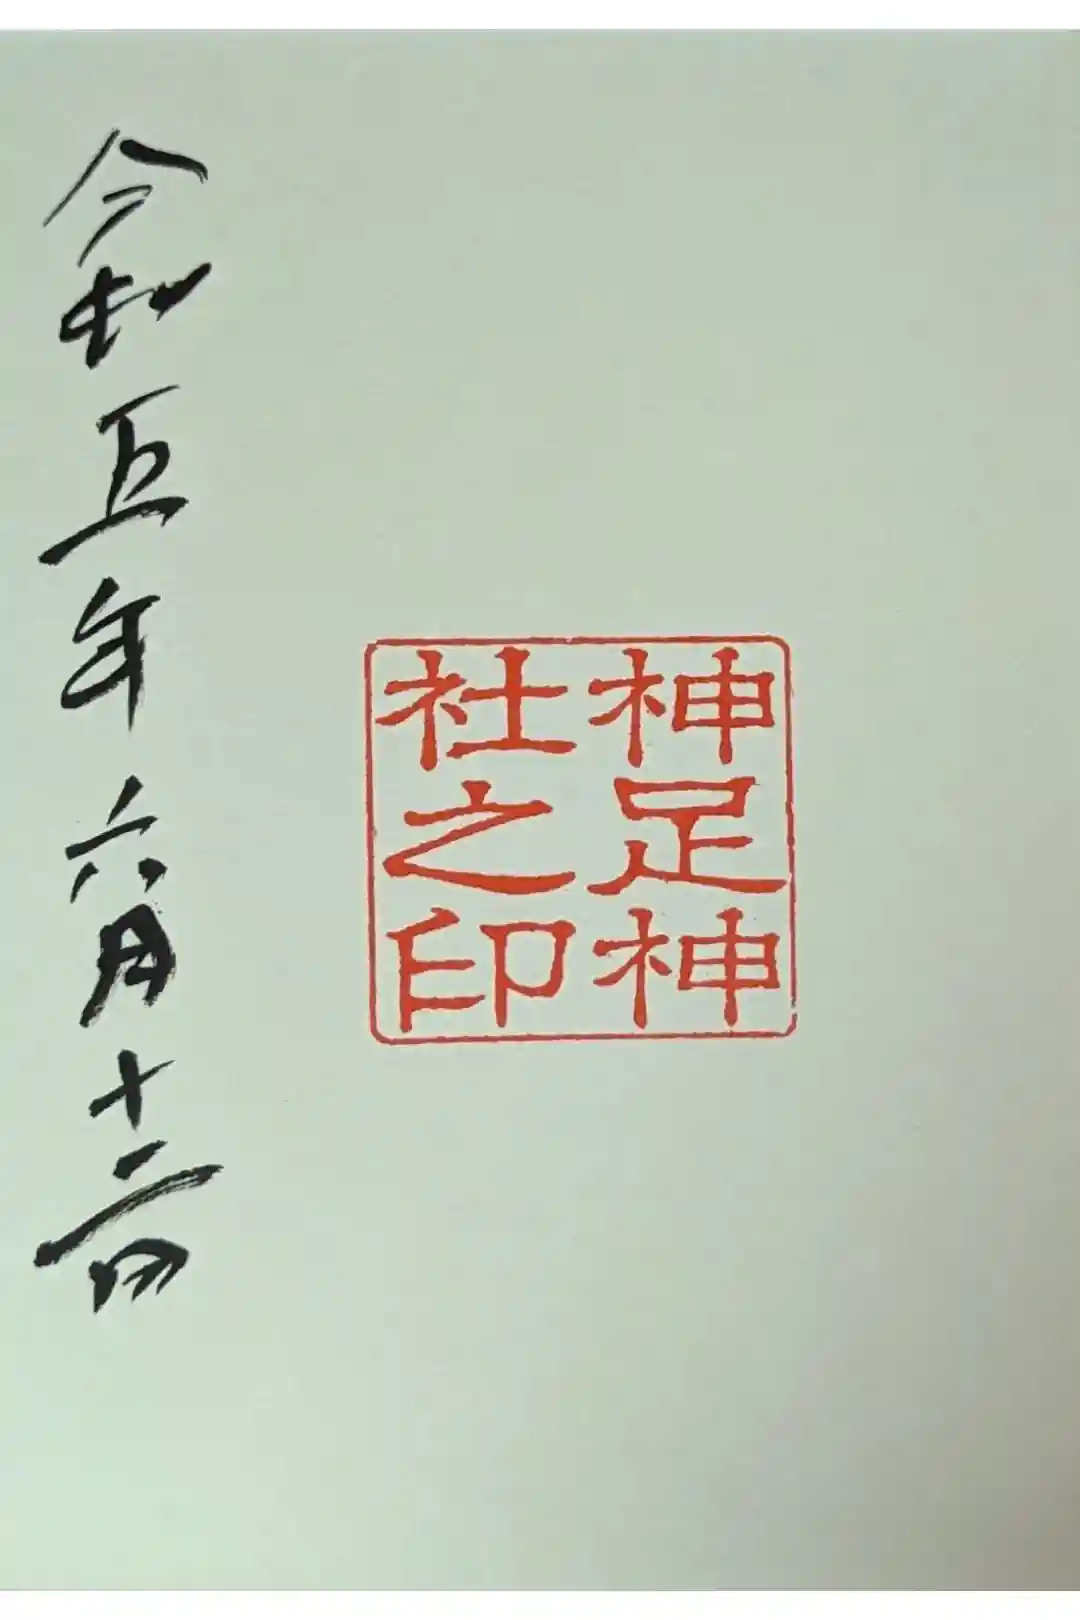 神足神
社之印
令和五年六月十二日